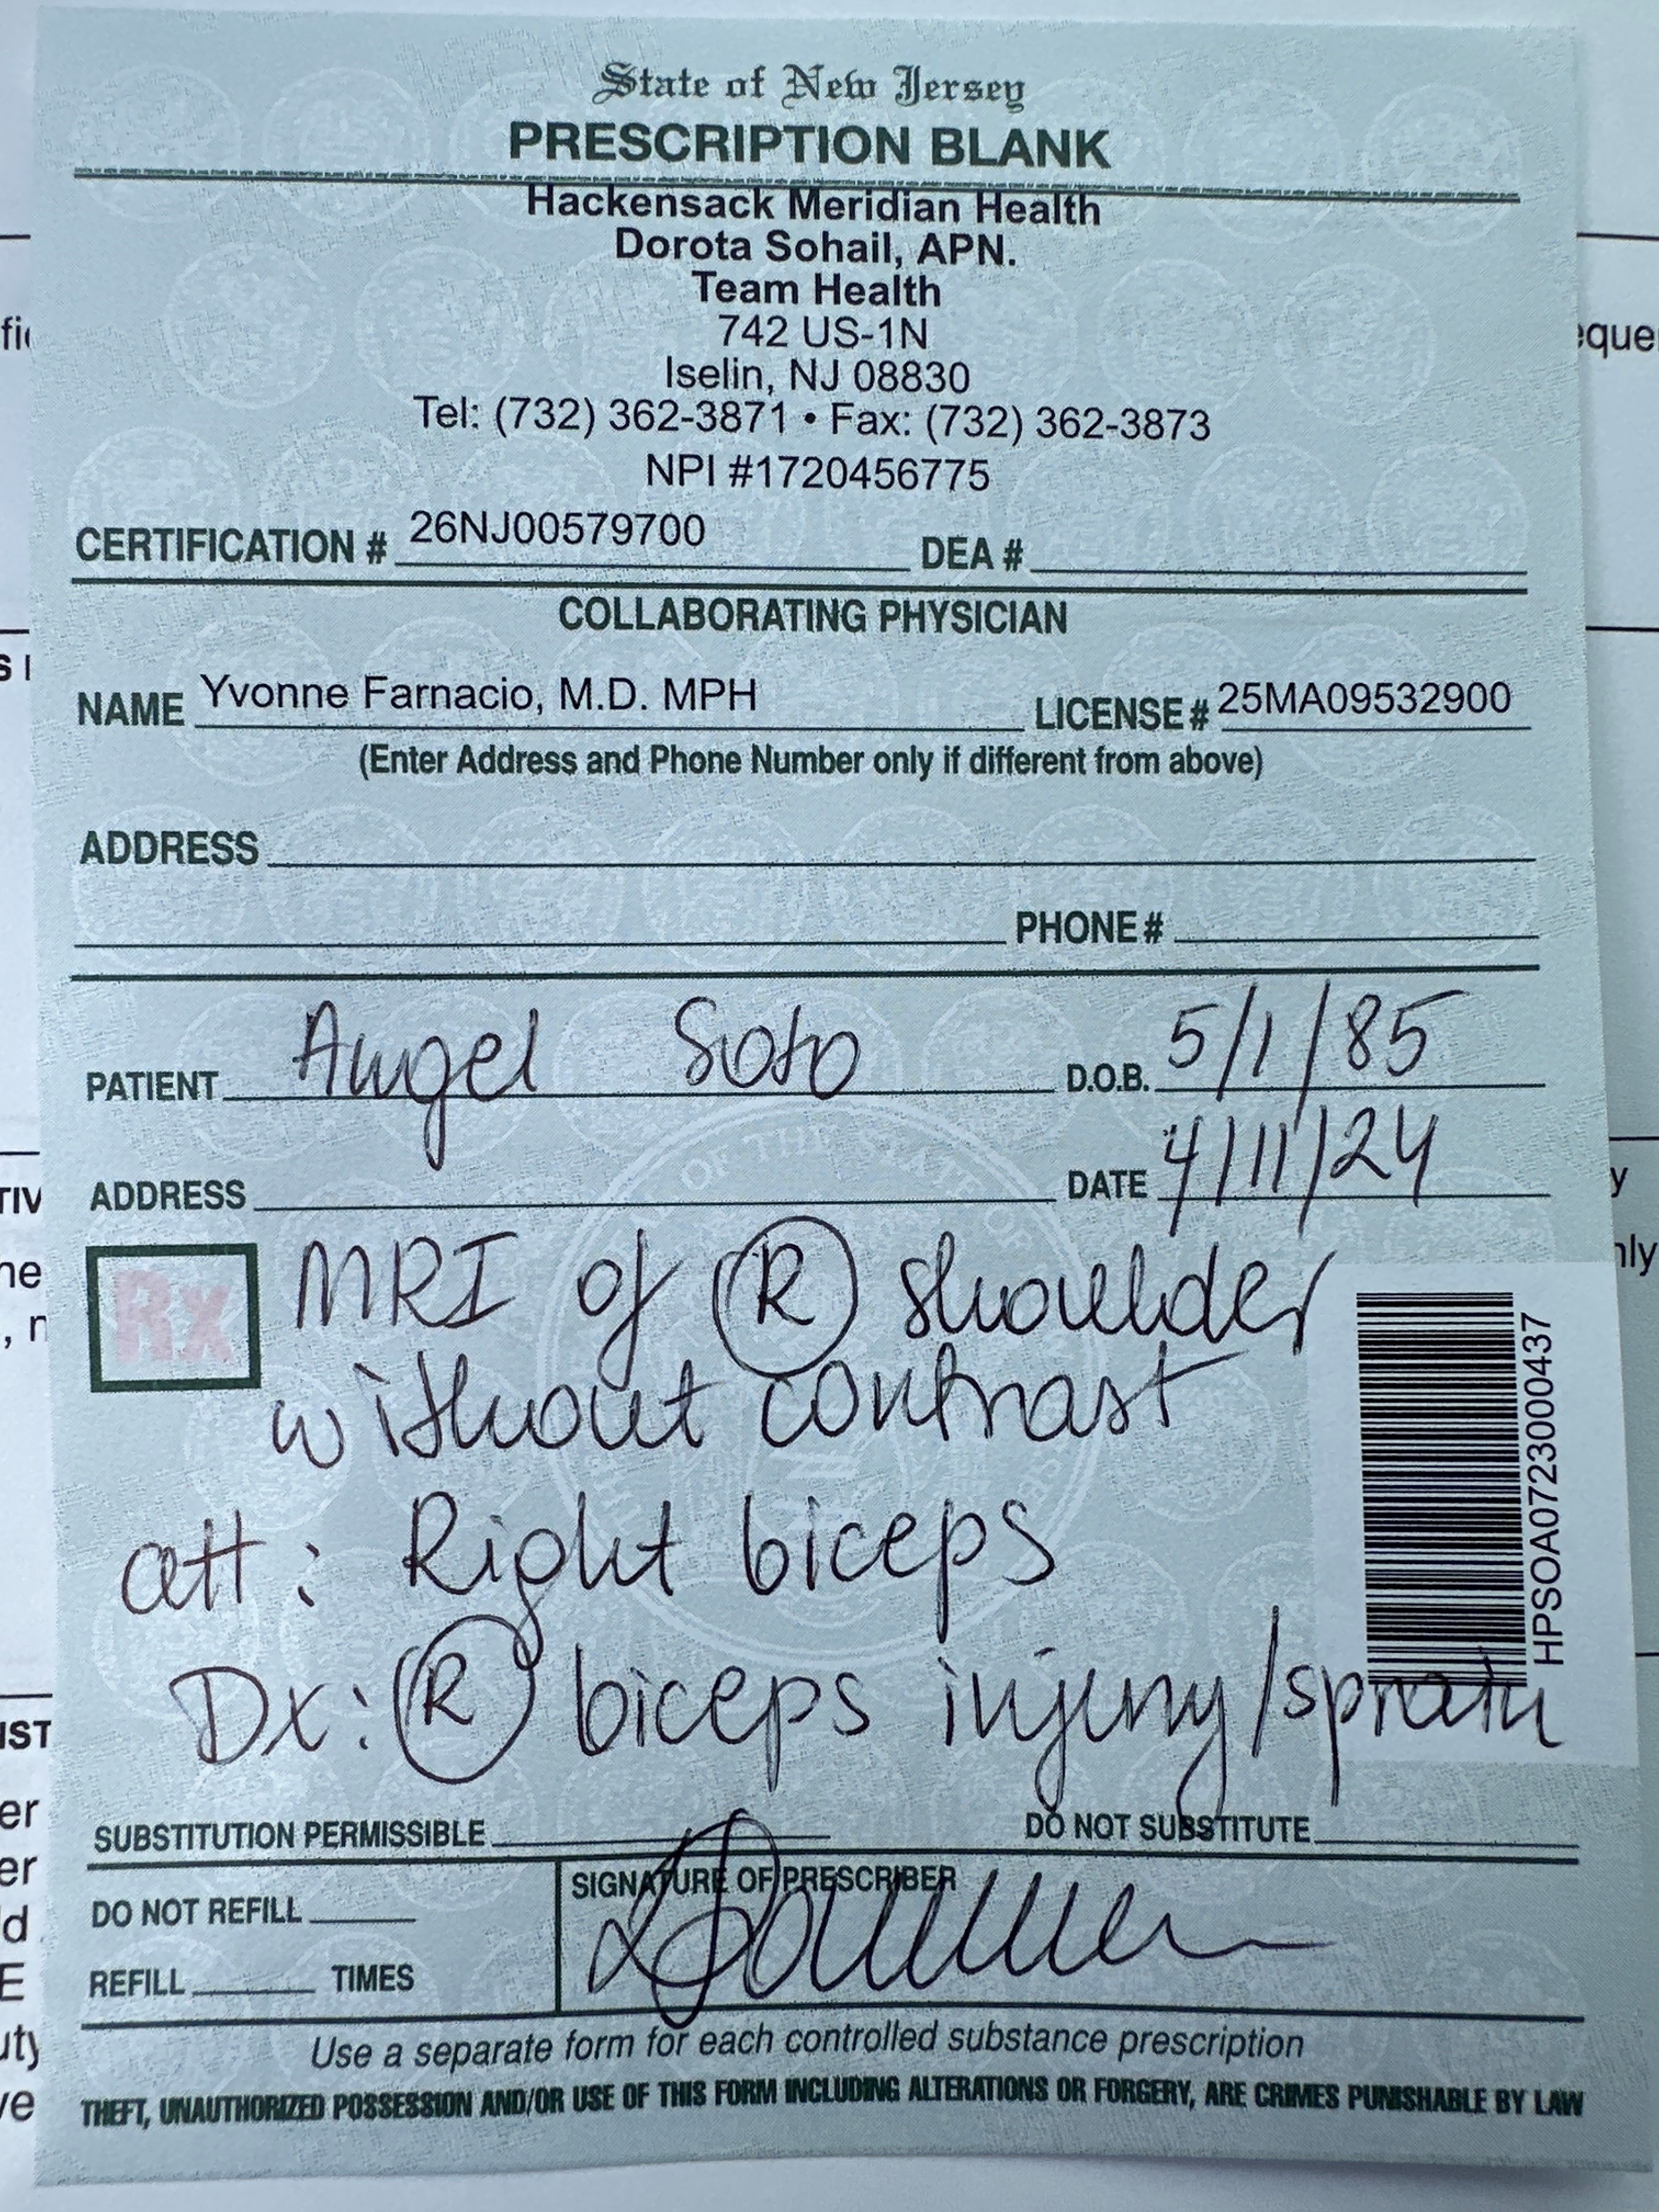 State of New Jersey
PRESCRIPTION BLANK
Hackensack Meridian Health
Dorota Sohail, APN.
Team Health
742 US-1N
Iselin, NJ 08830
Tel: (732) 362-3871 • Fax: (732) 362-3873
NPI #1720456775
CERTIFICATION # 26NJ00579700 DEA #
COLLABORATING PHYSICIAN
NAME Yvonne Farnacio, M.D. MPH LICENSE # 25MA09532900
(Enter Address and Phone Number only if different from above)
ADDRESS
PHONE #
PATIENT Angel Soto D.O.B. 5/1/85
ADDRESS DATE 4/11/24
Rx MRI of R shoulder
without contrast
att: Right biceps
Dx: R biceps injury/sprain
HPSOA0723000437
SUBSTITUTION PERMISSIBLE DO NOT SUBSTITUTE
DO NOT REFILL SIGNATURE OF PRESCRIBER
REFILL TIMES
Use a separate form for each controlled substance prescription
THEFT, UNAUTHORIZED POSSESSION AND/OR USE OF THIS FORM INCLUDING ALTERATIONS OR FORGERY, ARE CRIMES PUNISHABLE BY LAW